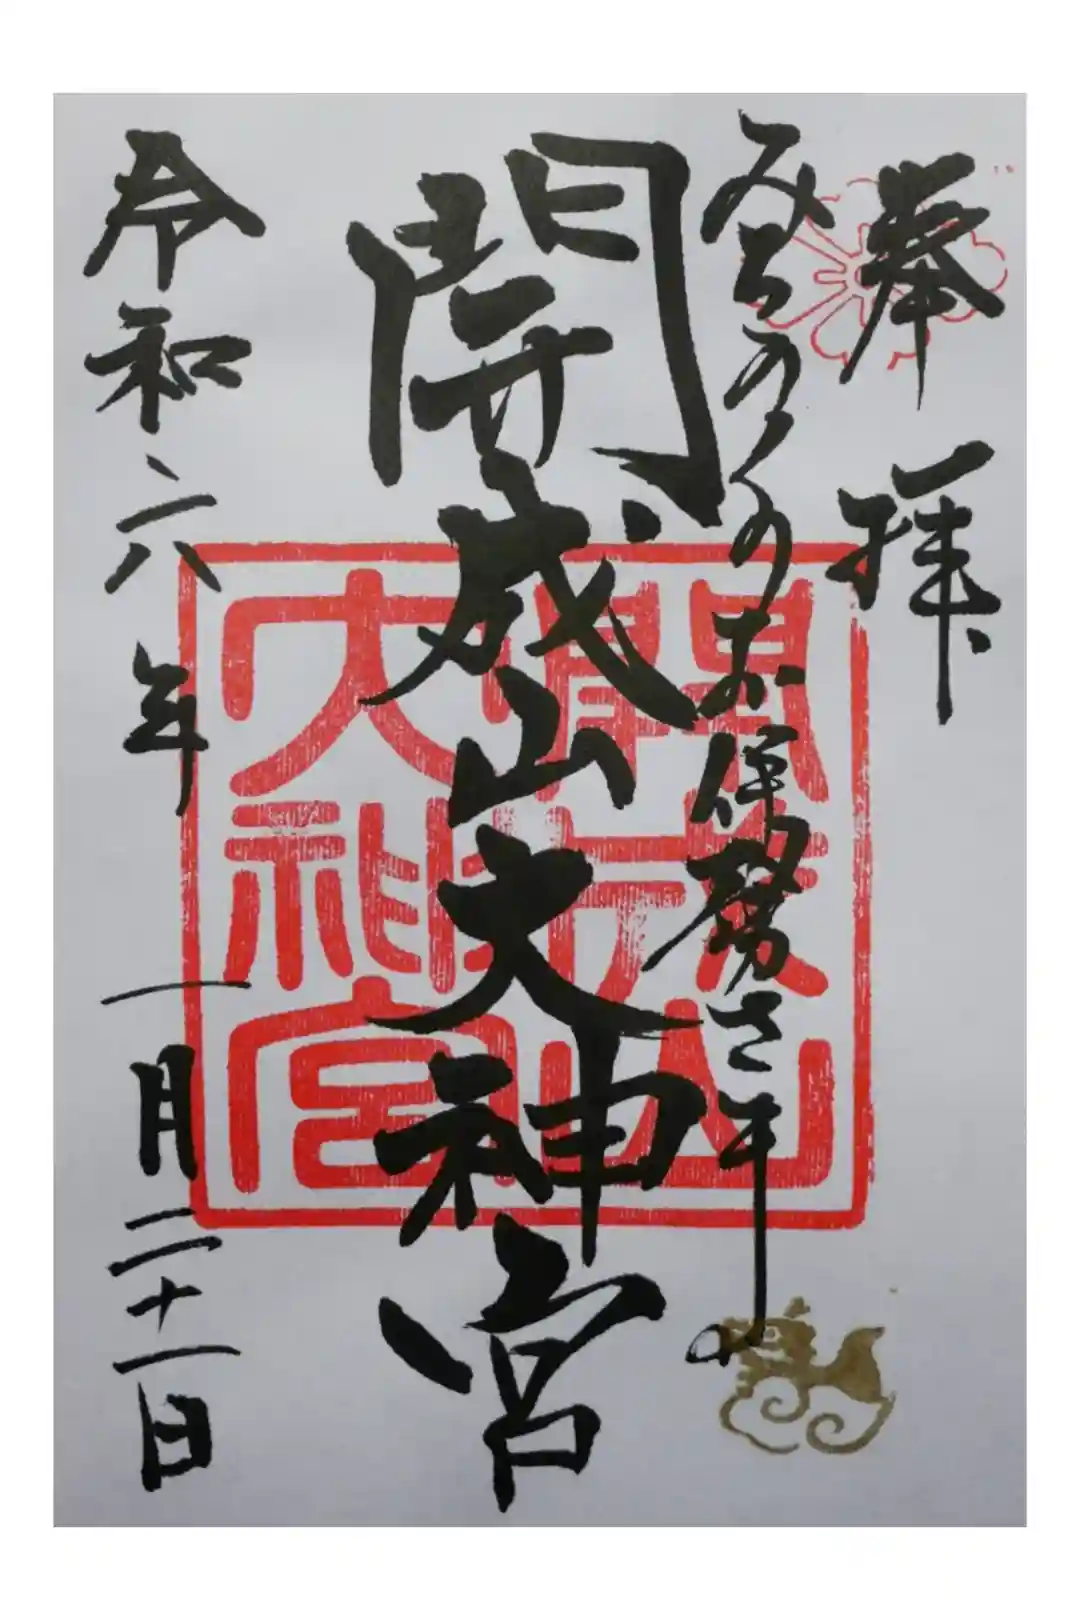 奉拝
みちのくのお伊勢さま
開成山大神宮
開成山大神宮
令和六年一月二十一日